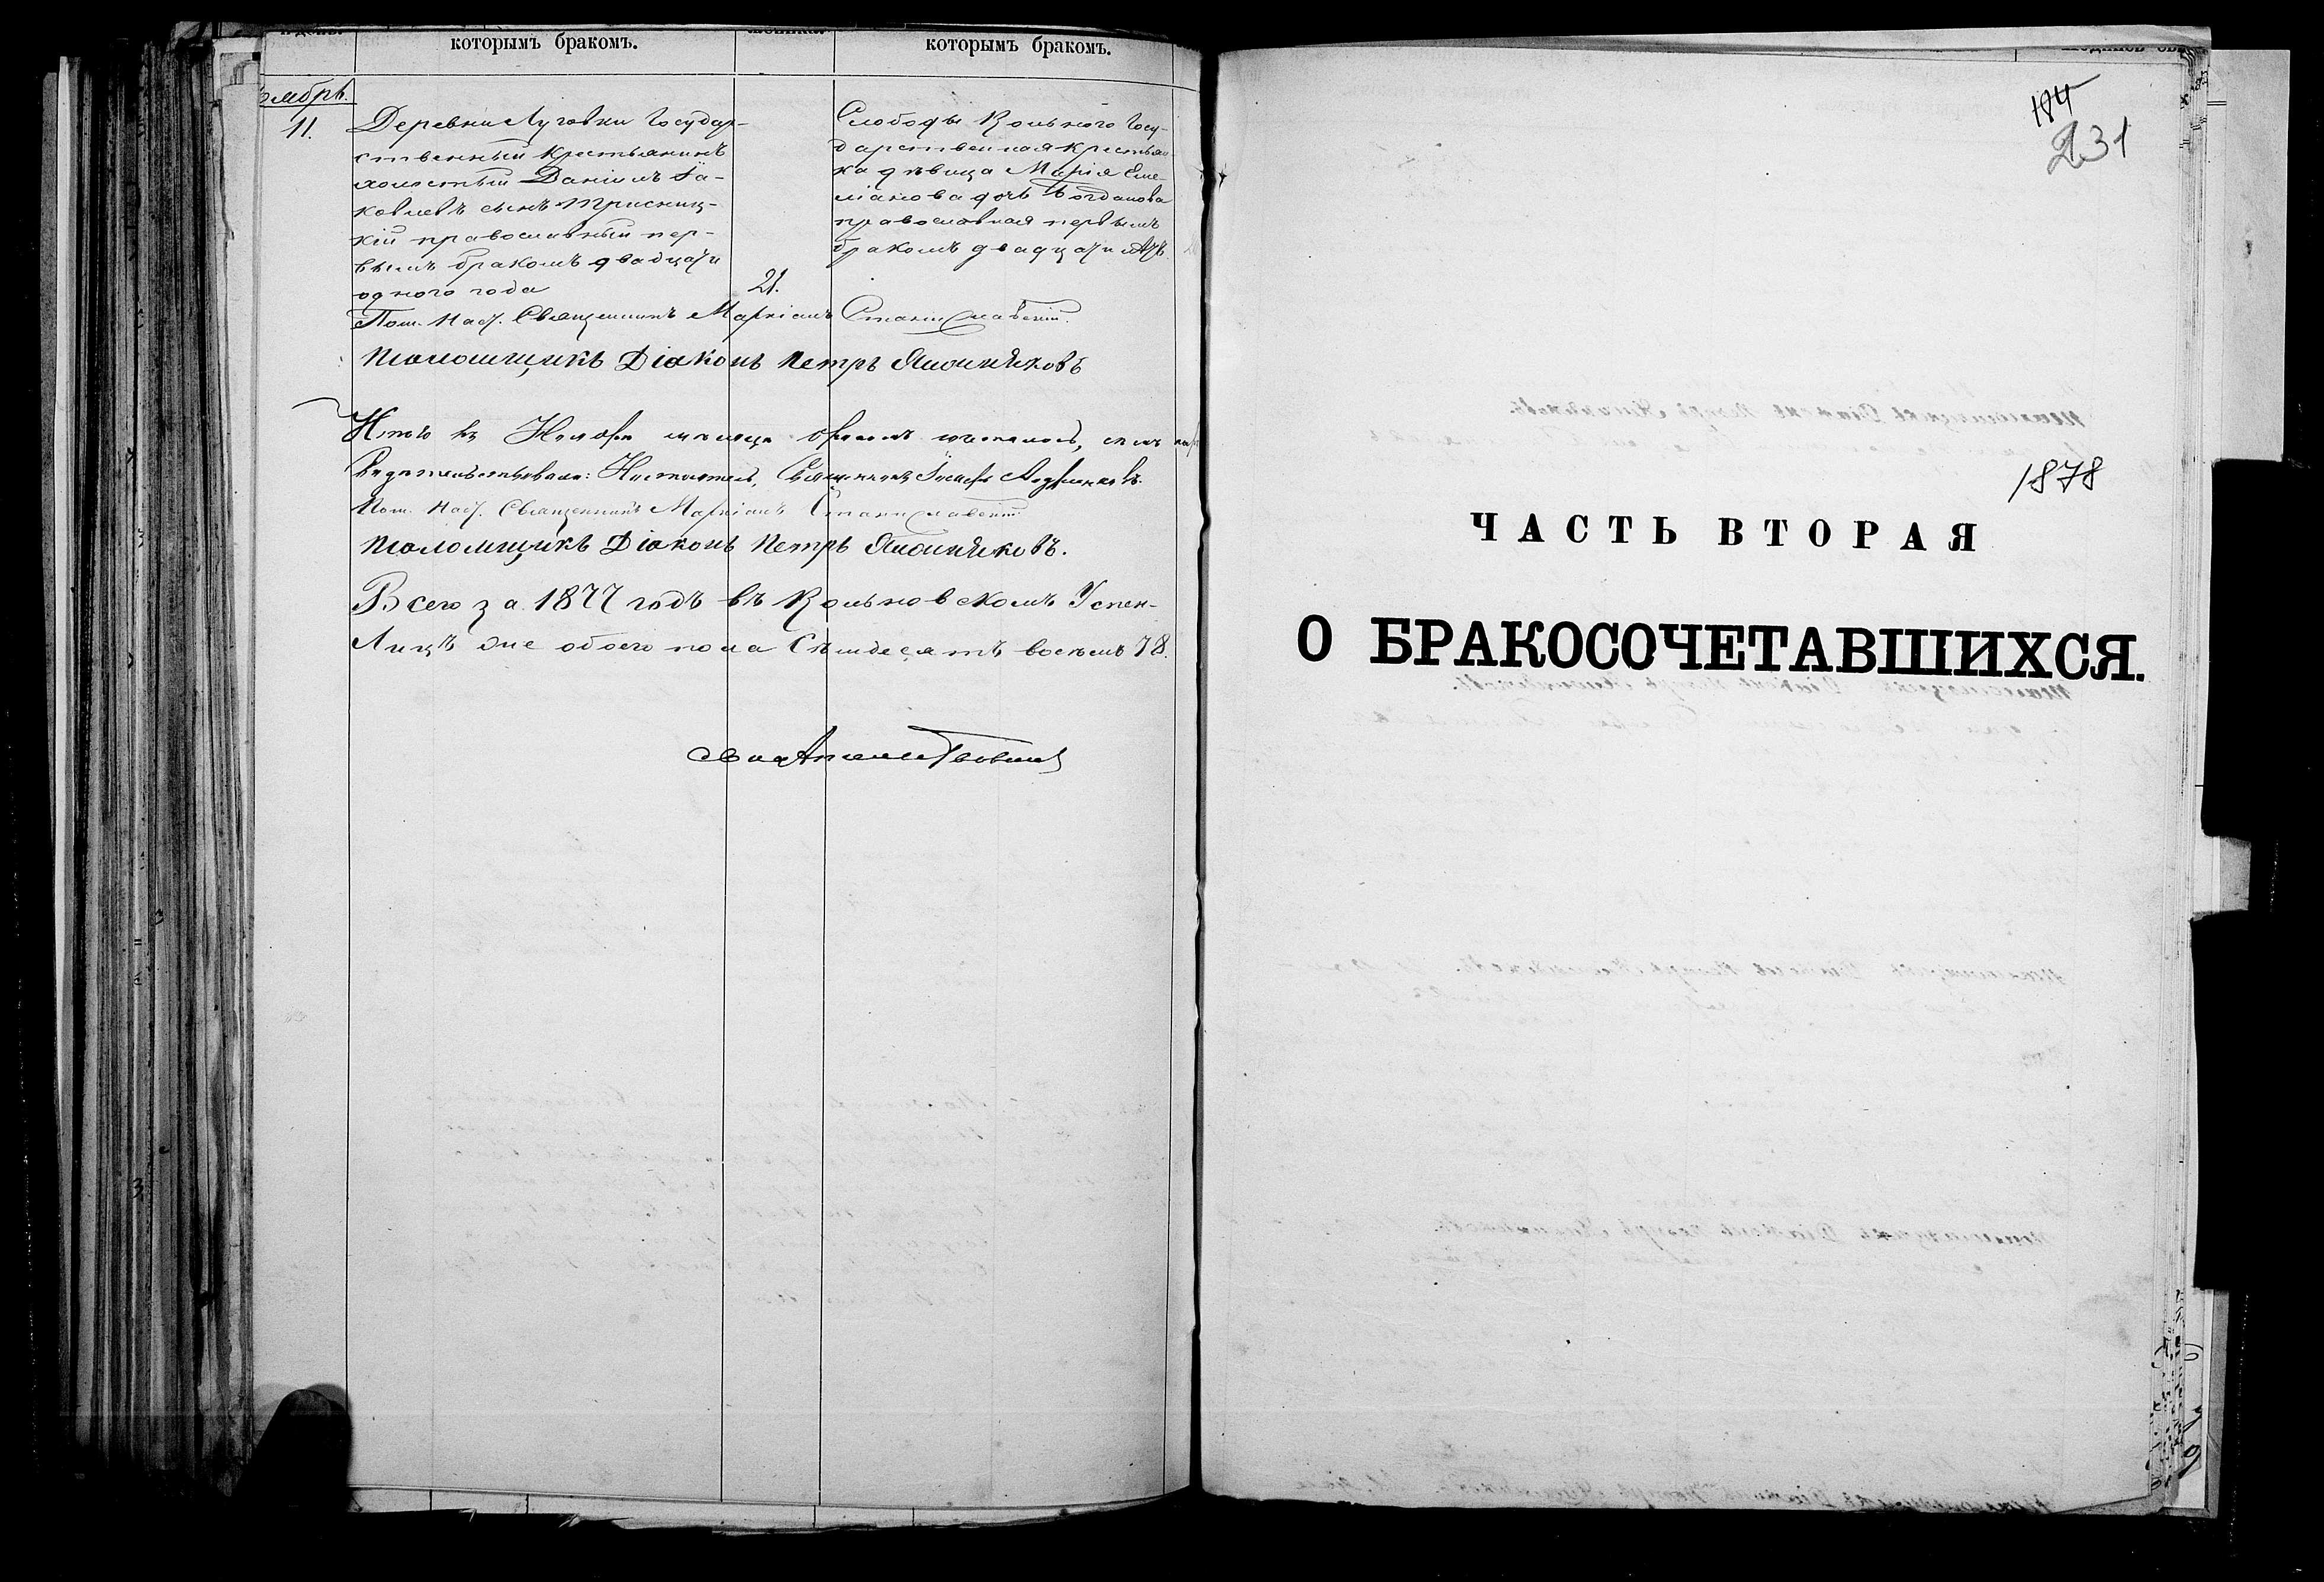 которымъ бракомъ.
которымъ бракомъ.
11.
Деревни Луговки Государ-
ственный крестьянинъ
холостый Данiилъ Iа-
ковлевъ сынъ
кiй православный пер-
вымъ бракомъ двадцати
одного года
21.
Слободы Вольного Госу-
дарственная крестьян-
ка дѣвица Марiя Еме-
лiанова дочь Богданова
православная первымъ
бракомъ двадцати
Пом. Наст. Священникъ Маркiанъ Станиславскiй.
Псаломщикъ Дiаконъ Петръ
Итого въ Ноябрѣ мѣсяцѣ браковъ
Свидѣтельствовали: Настоятель, Священникъ
Пом. Наст. Священникъ Маркiанъ Станиславскiй
Псаломщикъ Дiаконъ Петръ
Всего за 1877 годъ въ Вольновскомъ Успен-
Лицъ обоего пола Семдесятъ восемь 78.
184
231
1878
ЧАСТЬ ВТОРАЯ
О БРАКОСОЧЕТАВШИХСЯ.